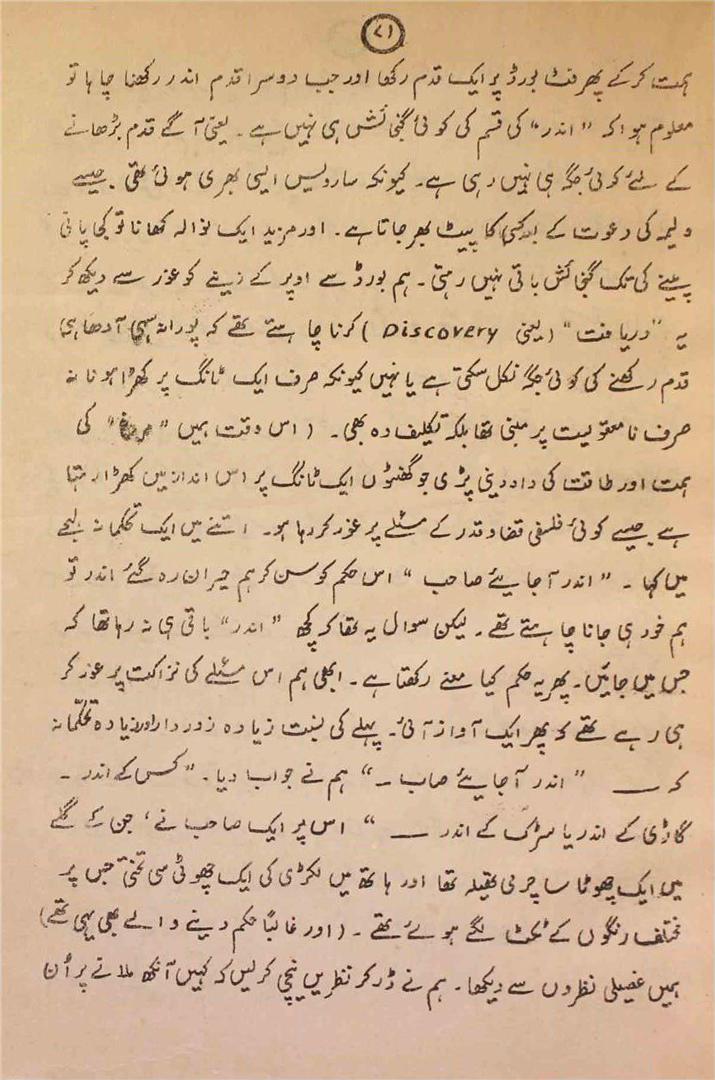 ۷۱
ہمت کرکے پھر فٹ بورڈ پر ایک قدم رکھا اور جب دوسرا قدم اندر رکھنا چاہا تو
معلوم ہوا کہ ”اندر“ کی قسم کی کوئی گنجائش ہی نہیں ہے۔ یعنی آگے قدم بڑھانے
کے لئے کوئی جگہ ہی نہیں رہی ہے۔ کیونکہ ساروبس ایسی بھری ہوئی تھی۔ جیسے
ولیمہ کی دعوت کے بعد کسی کا پیٹ بھر جاتا ہے۔ اور مزید ایک نوالہ کھانا تو کجا پانی
پینے کی تک گنجائش باقی نہیں رہتی۔ ہم بورڈ سے اوپر کے زینے کو غور سے دیکھ کر
یہ ”دریافت“ (یعنی Discovery) کرنا چاہتے تھے کہ پورا نہ سہی آدھا ہی
قدم رکھنے کی کوئی جگہ نکل سکتی ہے یا نہیں کیونکہ صرف ایک ٹانگ پر کھڑا ہونا نہ
صرف نامعقولیت پر مبنی تھا بلکہ تکلیف دہ بھی۔ (اس وقت ہمیں ”مرغ“ کی
ہمت اور طاقت کی داد دینی پڑی جو گھنٹوں ایک ٹانگ پر اس انداز میں کھڑا رہتا
ہے جیسے کوئی فلسفی قضا و قدر کے مسئلے پر غور کر رہا ہو۔ اتنے میں ایک تحکمانہ لہجے
میں کہا۔ ”اندر آجایئے صاحب“ اس حکم کو سن کر ہم حیران رہ گئے اندر تو
ہم خود ہی جانا چاہتے تھے۔ لیکن سوال یہ تھا کہ کچھ ”اندر“ باقی ہی نہ رہا تھا کہ
جس میں جائیں۔ پھر یہ حکم کیا معنے رکھتا ہے۔ ابھی ہم اس مسئلے کی نزاکت پر غور کر
ہی رہے تھے کہ پھر ایک آواز آئی۔ پہلے کی نسبت زیادہ زوردار اور زیادہ تحکّمانہ
کہ — ”اندر آجایئے صاب —“ ہم نے جواب دیا۔ ”کس کے اندر۔
گاڑی کے اندر یا سڑک کے اندر —“ اس پر ایک صاحب نے، جن کے گلے
میں ایک چھوٹا سا چرمی تھیلہ تھا اور ہاتھ میں لکڑی کی ایک چھوٹی سی تختی جس پر
مختلف رنگوں کے ٹکٹ لگے ہوئے تھے۔ (اور غالباً حکم دینے والے بھی یہی تھے)
ہمیں غصیلی نظروں سے دیکھا۔ ہم نے ڈر کر نظریں نیچی کرلیں کہ کہیں آنکھ ملانے پر اُن